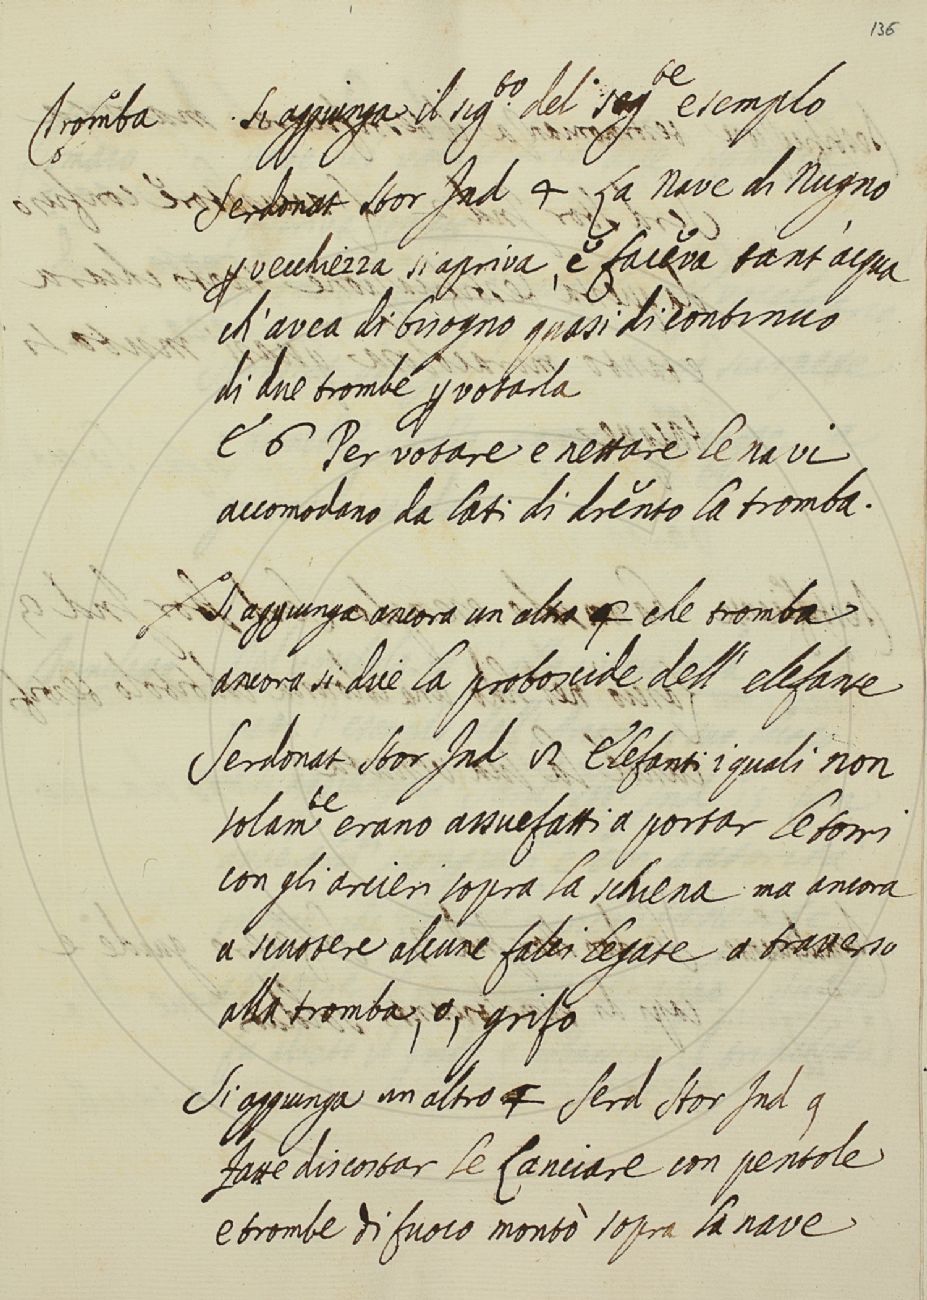 136
Tromba Si aggiunga il sig.to del seg.te esemplo
Serdonat Stor Ind 4 La Nave di Nugno
p vecchiezza si apriva, e faceva tant'acqua
ch'avea di bisogno quasi di continuo
di due trombe p votarla
E 6 Per votare e nettare le navi
accomodano da lati di drento la tromba.
Si aggiunga ancora un altro che tromba
ancora si dice la proboscide dell' elefante
Serdonat Stor Ind Elefanti i quali non
solam.te erano assuefatti a portar le torri
con gli arcieri sopra la schiena ma ancora
a scuotere alcune falci legate a traverso
alla tromba, o, grifo
Si aggiunga un altro Serd Stor Ind 9
Fatte discostar le Lanciare con pentole
e trombe di fuoco montò sopra la nave